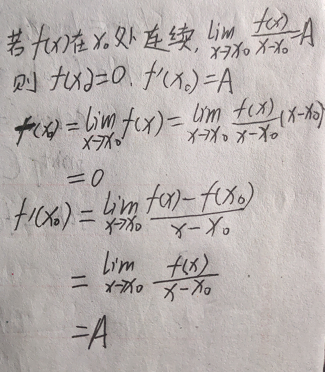 若 f(x)在 x₀ 处连续, lim x→x₀ f(x)/(x-x₀) = A
则 f(x₀)=0, f'(x₀)=A
f(x₀) = lim x→x₀ f(x) = lim x→x₀ f(x)/(x-x₀) (x-x₀)
= 0
f'(x₀) = lim x→x₀ (f(x)-f(x₀))/(x-x₀)
= lim x→x₀ f(x)/(x-x₀)
= A